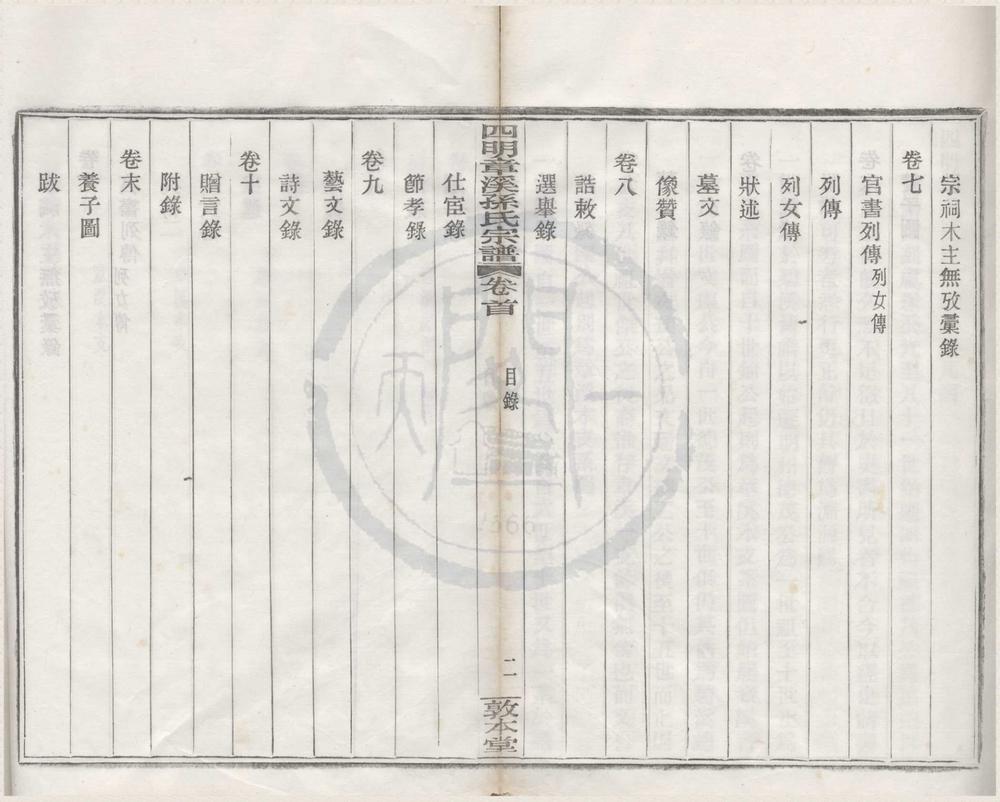 宗祠木主無攷彚錄
卷七
官書列傳列女傳
列傳
列女傳
狀述
墓文
像贊
卷八
誥敕
選舉錄
四明章溪孫氏宗譜 卷首 目錄 二 敦本堂
仕宦錄
節孝錄
卷九
藝文錄
詩文錄
卷十
贈言錄
附錄
卷末
養子圖
跋
1666